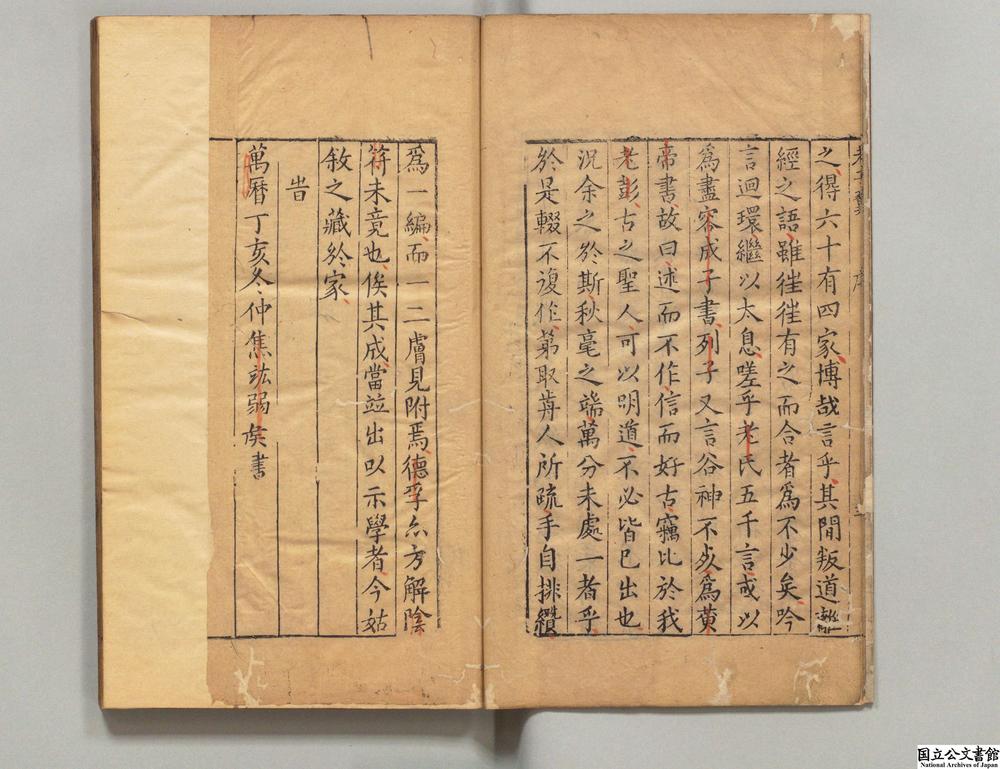 老子翼　序
之得六十有四家博哉言乎其間叛道離
經之語雖徃徃有之而合者為不少矣吟
言迴環繼以太息嗟乎老氏五千言或以
為盡容成子書列子又言谷神不死為黄
帝書故曰述而不作信而好古竊比於我
老彭古之聖人可以明道不必皆已出也
况余之於斯秋毫之端萬分未處一者乎
於是輟不復作第取前人所疏手自排纘
為一編而一二膚見附焉德孚亦方解陰
符未竟也俟其成當並出以示學者今姑
敘之藏於家
旹
萬曆丁亥冬仲焦竑弱侯書
国立公文書館
National Archives of Japan